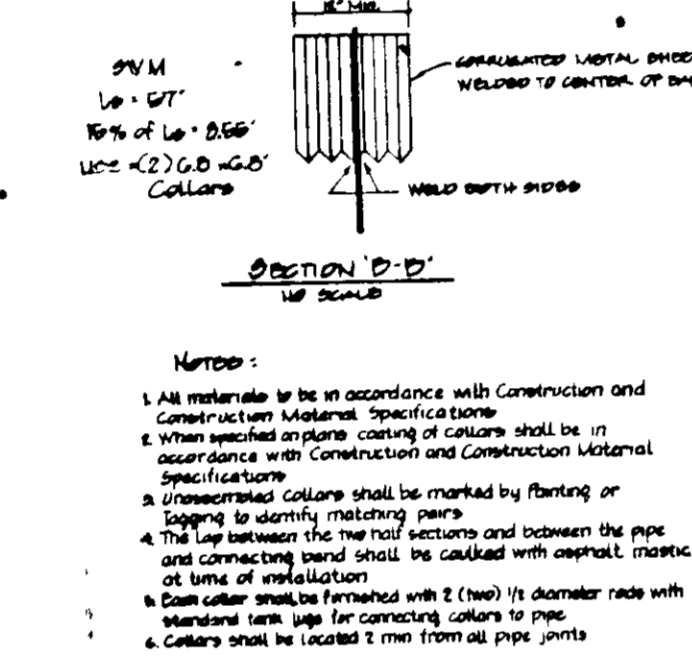 12" MIN.
CORRUGATED METAL SHEET
WELDED TO CENTER OF BAND
SWM
Ls = 57'
15% of Ls = 8.55'
use (2) 6.8 x 6.8'
Collars
WELD BOTH SIDES
SECTION 'B-B'
NO SCALE
NOTES :
1. All materials to be in accordance with Construction and
Construction Material Specifications
2. When specified on plans coating of collars shall be in
accordance with Construction and Construction Material
Specifications
3. Unassembled Collars shall be marked by Painting or
Tagging to identify matching pairs
4. The Lap between the two half sections and between the pipe
and connecting band shall be caulked with asphalt mastic
at time of installation
5. Each collar shall be furnished with 2 (two) 1/2 diameter rods with
standard tank lugs for connecting collars to pipe
6. Collars shall be located 2 min from all pipe joints